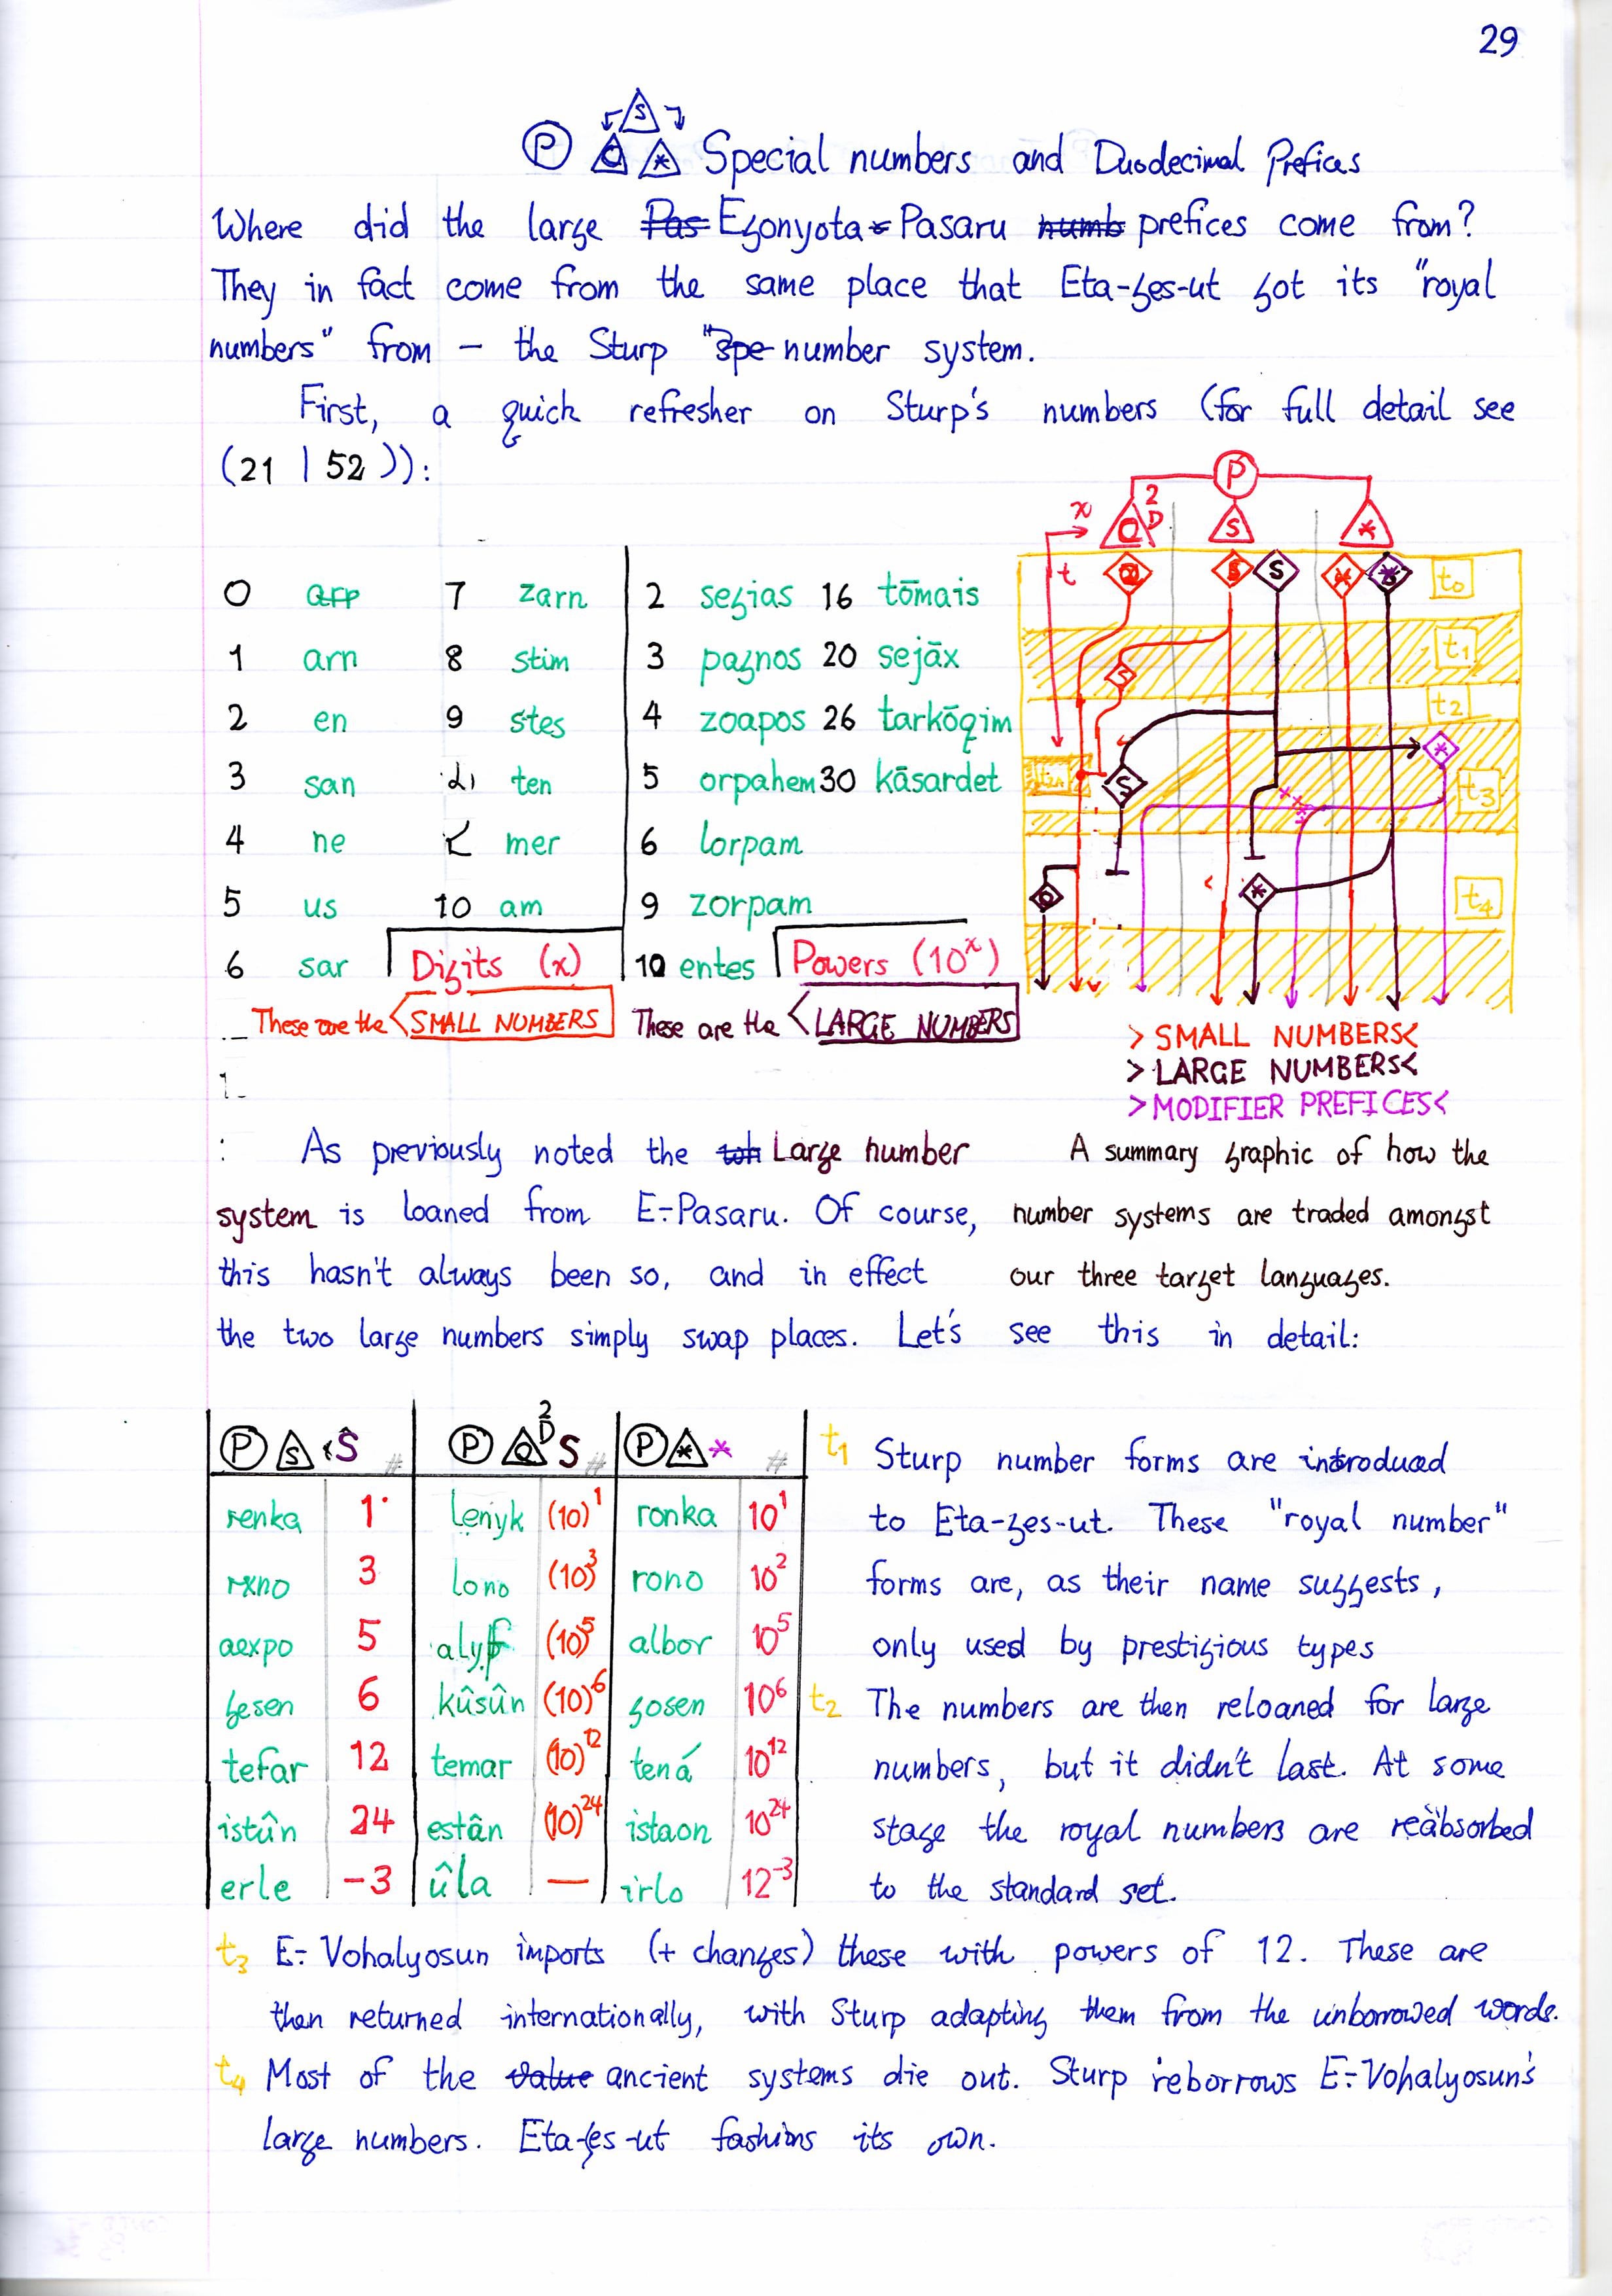 29
P S Q * Special numbers and Duodecimal Prefices
Where did the large Pas Egonyota Pasaru numb prefices come from?
They in fact come from the same place that Eta-ges-ut got its "royal
numbers" from – the Sturp "Spe number system.
First, a quick refresher on Sturp's numbers (for full detail see
(21 | 52)):
0 arp 7 zarn 2 segias 16 tōmais
1 arn 8 stim 3 pagnos 20 sejāx
2 en 9 stes 4 zoapos 26 tarkōqim
3 san ten 5 orpahem 30 kāsardet
4 ne mer 6 lorpam
5 us 10 am 9 zorpam
6 sar Digits (x) 10 entes Powers (10^x)
These are the <SMALL NUMBERS These are the <LARGE NUMBERS
P
x Q 2 D S *
t Q S S * * t0
S t1
t2
S * t3
Q * t4
>SMALL NUMBERS<
>LARGE NUMBERS<
>MODIFIER PREFICES<
A summary graphic of how the
number systems are traded amongst
our three target languages.
As previously noted the Large number
system is loaned from E-Pasaru. Of course,
this hasn't always been so, and in effect
the two large numbers simply swap places. Let's see this in detail:
P S ‹Ŝ # P Q 2 D S # P * * #
renka 1 lenyk (10)^1 ronka 10^1
rxno 3 lono (10)^3 rono 10^2
aexpo 5 (10)^5 albor 10^5
gesen 6 kûsûn (10)^6 gosen 10^6
tefar 12 temar (10)^12 tená 10^12
istûn 24 estân (10)^24 istaon 10^24
erle -3 ûla — irlo 12^-3
t1 Sturp number forms are introduced
to Eta-ges-ut. These "royal number"
forms are, as their name suggests,
only used by prestigious types
t2 The numbers are then reloaned for large
numbers, but it didn't last. At some
stage the royal numbers are reäbsorbed
to the standard set.
t3 E- Vohalyosun imports (+ changes) these with powers of 12. These are
then returned internationally, with Sturp adapting them from the unborrowed words.
t4 Most of the value ancient systems die out. Sturp reborrows E-Vohalyosun's
large numbers. Eta-ges-ut fashions its own.